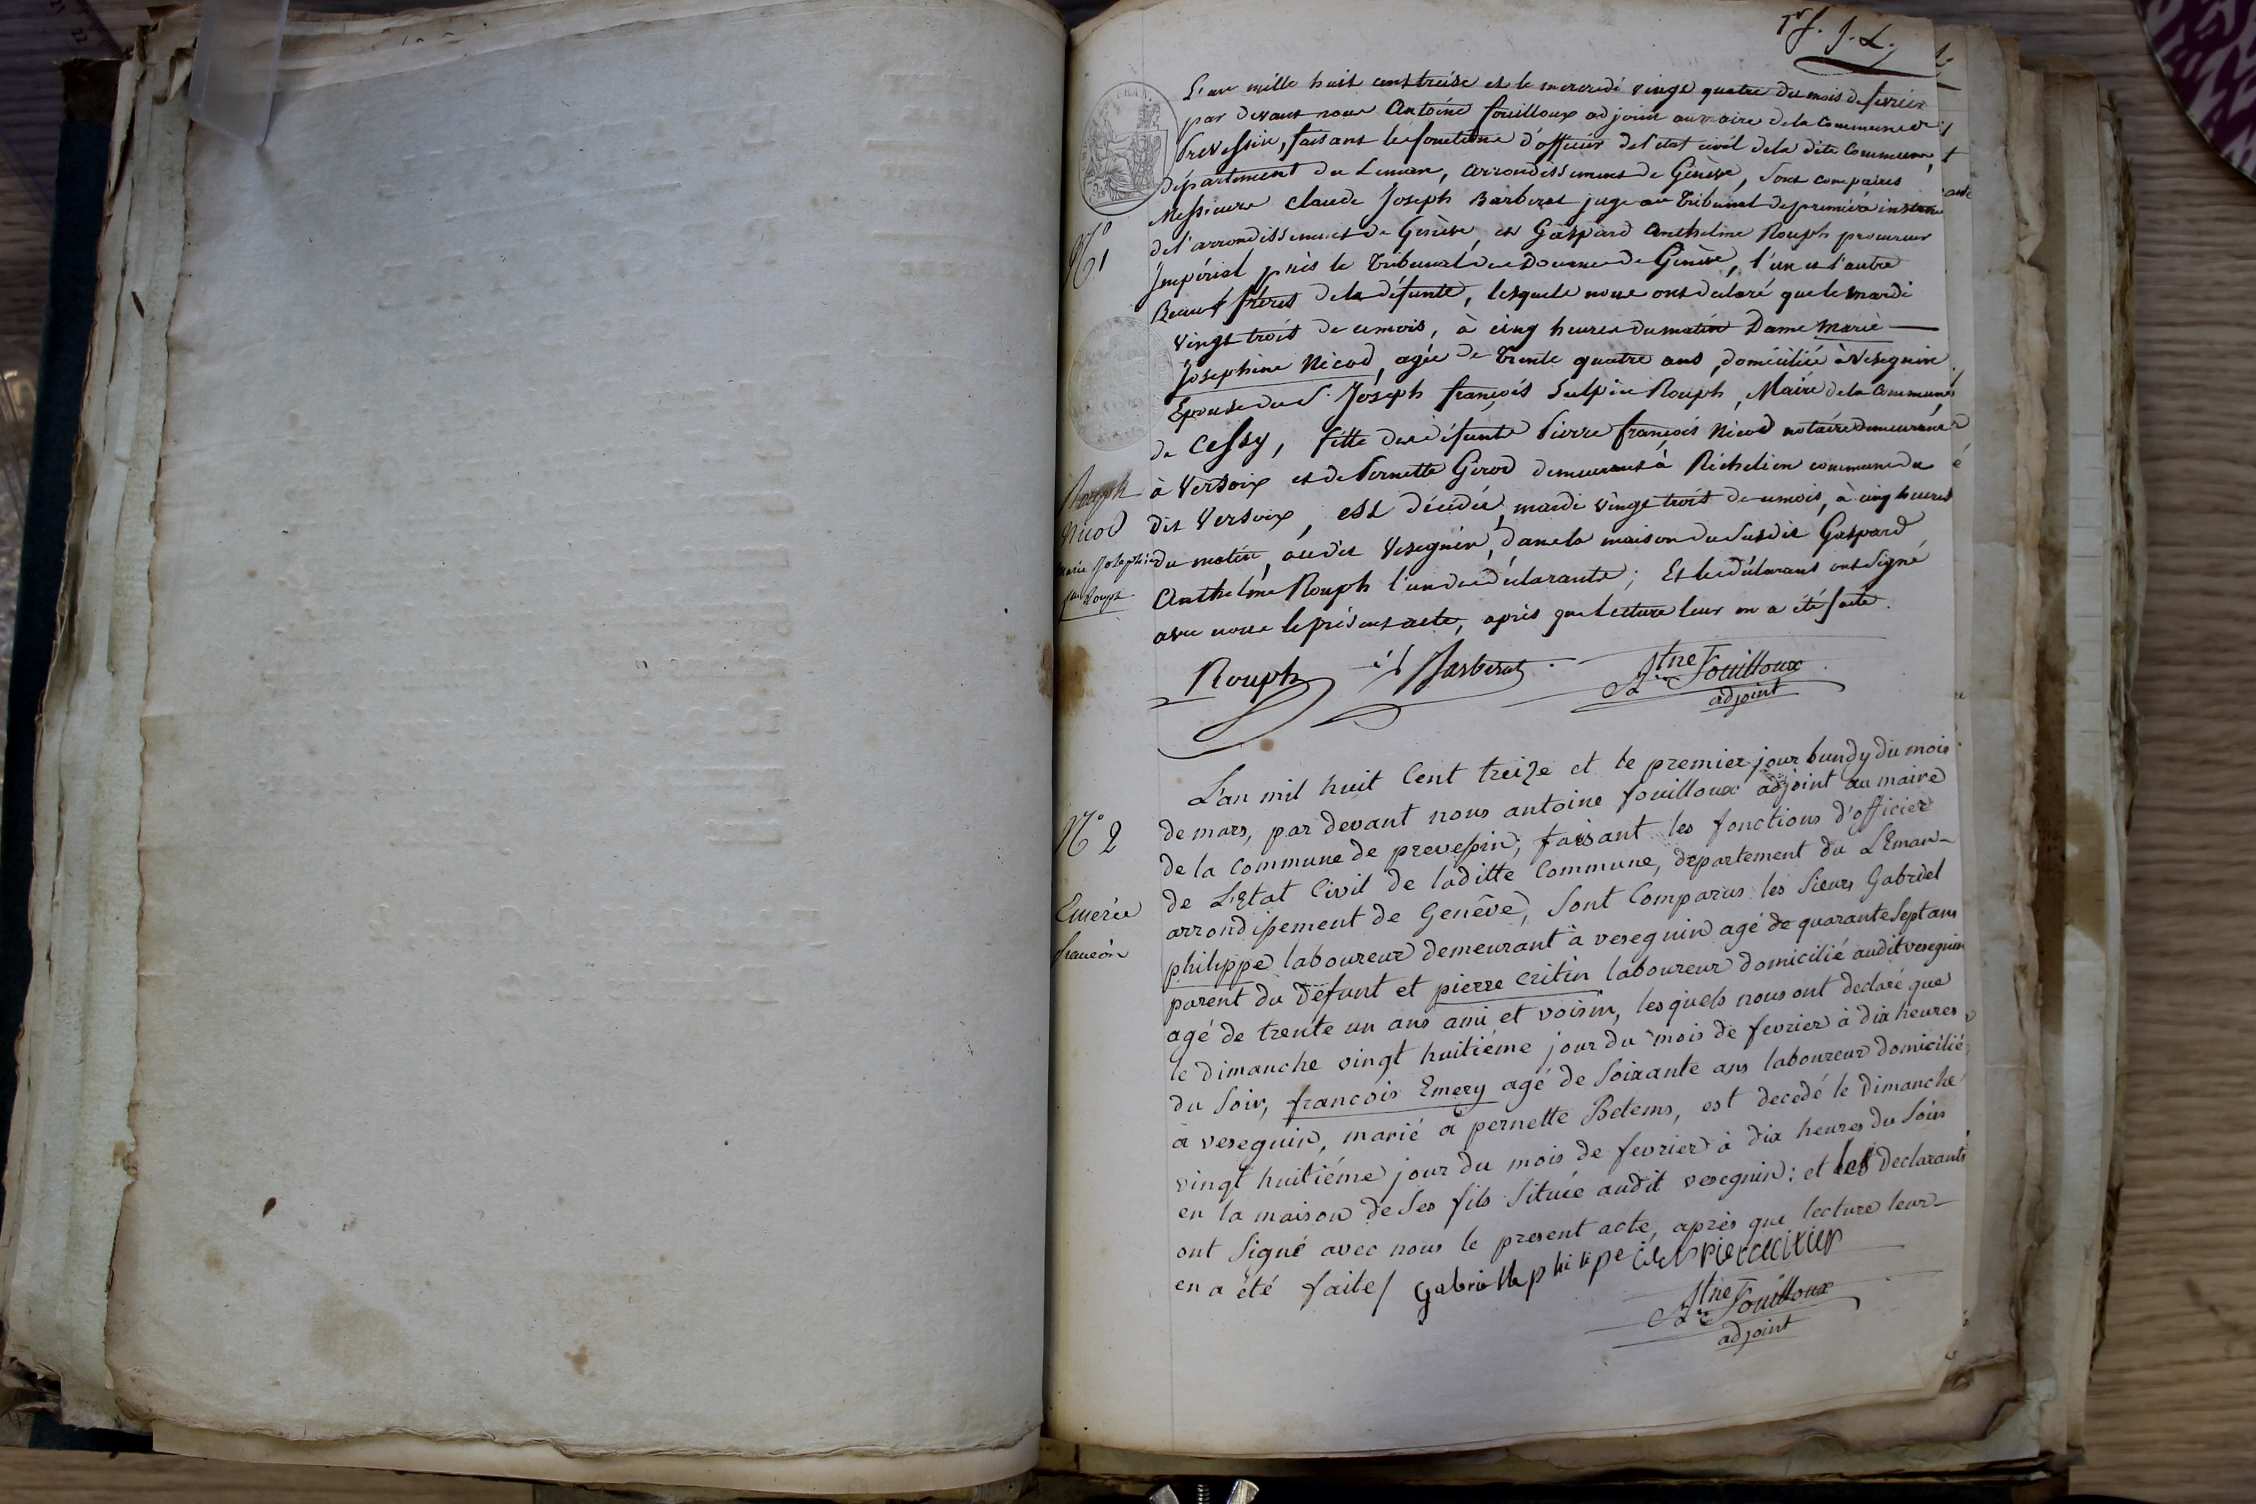 1er f. J. L.
L'an mille huit cent treise et le mercredi vingt quatre du mois de fevrier
par devant nous Antoine fouilloux adjoint au maire de la Commune de
Prevessin, faisant les fonctions d'officier de l'etat civil de la dite Commune,
département du Leman, arrondissement de Genève, sont comparus
Messieurs Claude Joseph Barberat juge au Tribunal de première instance
de l'arrondissement de Genève, et Gaspard Anthelme Rouph procureur
N° 1
Impérial près le Tribunal des Douanes de Genève, l'un et l'autre
Beaux frères de la défunte, lesquels nous ont declaré que le mardi
vingt trois de ce mois, à cinq heures du matin Dame Marie
Josephine Nicod, agée de trente quatre ans, domiciliée à Vesegnin
Epouse du Sr. Joseph françois Sulpice Rouph, Maire de la Commune
de Cessy, fille des défunts Pierre françois Nicod notaire demeurant
à Versoix et de Pernette Girod demeurant à Richelieu commune du
dit Versoix, est décédée, mardi vingt trois de ce mois, à cinq heures
du matin, au dit Vesegnin, dans la maison du susdit Gaspard
Anthelme Rouph l'un des déclarants; Et les déclarans ont signé
avec nous le présent acte, après que lecture leur en a été faite.
Rouph
Nicod
Marie Josephine
fme Rouph
Rouph Barberat Atne Fouilloux
adjoint
L'an mil huit Cent treize et le premier jour lundy du mois
de mars, par devant nous antoine fouilloux adjoint au maire
N° 2
de la commune de prevessin, faisant les fonctions d'officier
de L'Etat Civil de laditte Commune, departement du LEman
arrondissement de Genêve, sont Comparus les sieurs Gabriel
Emerie
françois
philippe laboureur demeurant à vesegnin agé de quarante sept ans
parent du Defunt et pierre critin laboureur domicilié audit vesegnin
agé de trente un ans ami et voisin, lesquels nous ont declaré que
le dimanche vingt huitième jour du mois de fevrier à dix heures
du soir, francois Emery agé de soixante ans laboureur domicilié
à vesegnin, marié à pernette Betems, est decedé le dimanche
vingt huitiéme jour du mois de fevrier à dix heures du soir
en la maison de ses fils située audit vesegnin: et les declarants
ont signé avec nous le present acte, après que lecture leur
en a été faite/ Gabrielle philipe pierre critin
Atne Fouilloux
adjoint